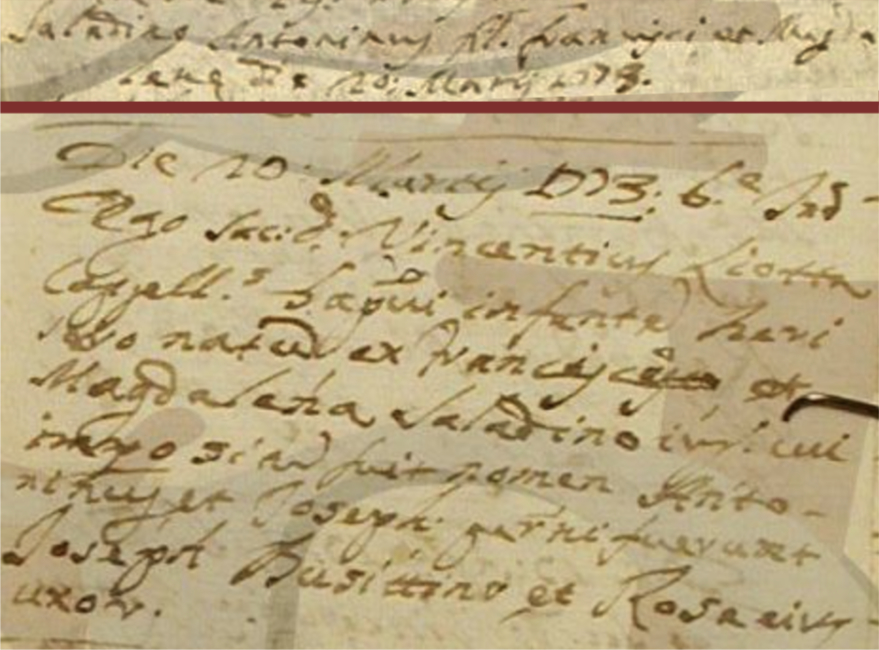 Saladino Antoninus fil. Francisci et Magda
lene die 10: Martij 1773.
Die 10: Martij 1773: 6.e Ind
Ego Sac: D. Vincentius Liotta
Cappell.s bap̃vi infantẽ heri
natũ ex Francisco et
Magdalena Saladino iug: cui
impositũ fuit nomen Anto-
ninus et Joseph: p̃rni fuerunt
Joseph et Rosa eius
uxor.